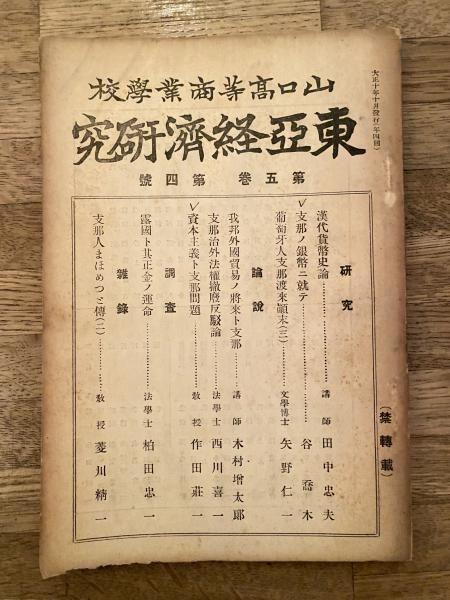 大正十年十月發行(一年四回)
山口高等商業學校
東亞經濟研究
第五卷 第四號
研究
漢代貨幣史論 講師 田中忠夫
支那ノ銀幣ニ就テ 谷喬木
葡萄牙人支那渡來顚末(三) 文學博士 矢野仁一
論說
我邦外國貿易ノ將來ト支那 講師 木村增太郎
支那治外法權撤廢反駁論 法學士 西川喜一
資本主義ト支那問題 敎授 作田莊一
調査
露國ト其正金ノ運命 法學士 柏田忠一
雜錄
支那人まほめつと傳(二) 敎授 菱川精一
(禁轉載)